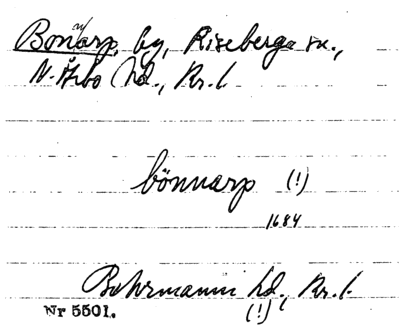 Bonarp, by, Riseberga sn.,
N. Åsbo hd., Kr. l.
bönnarp (!)
1684
Buhrmanni hd., Kr. l.
(!)
Nr 5501.